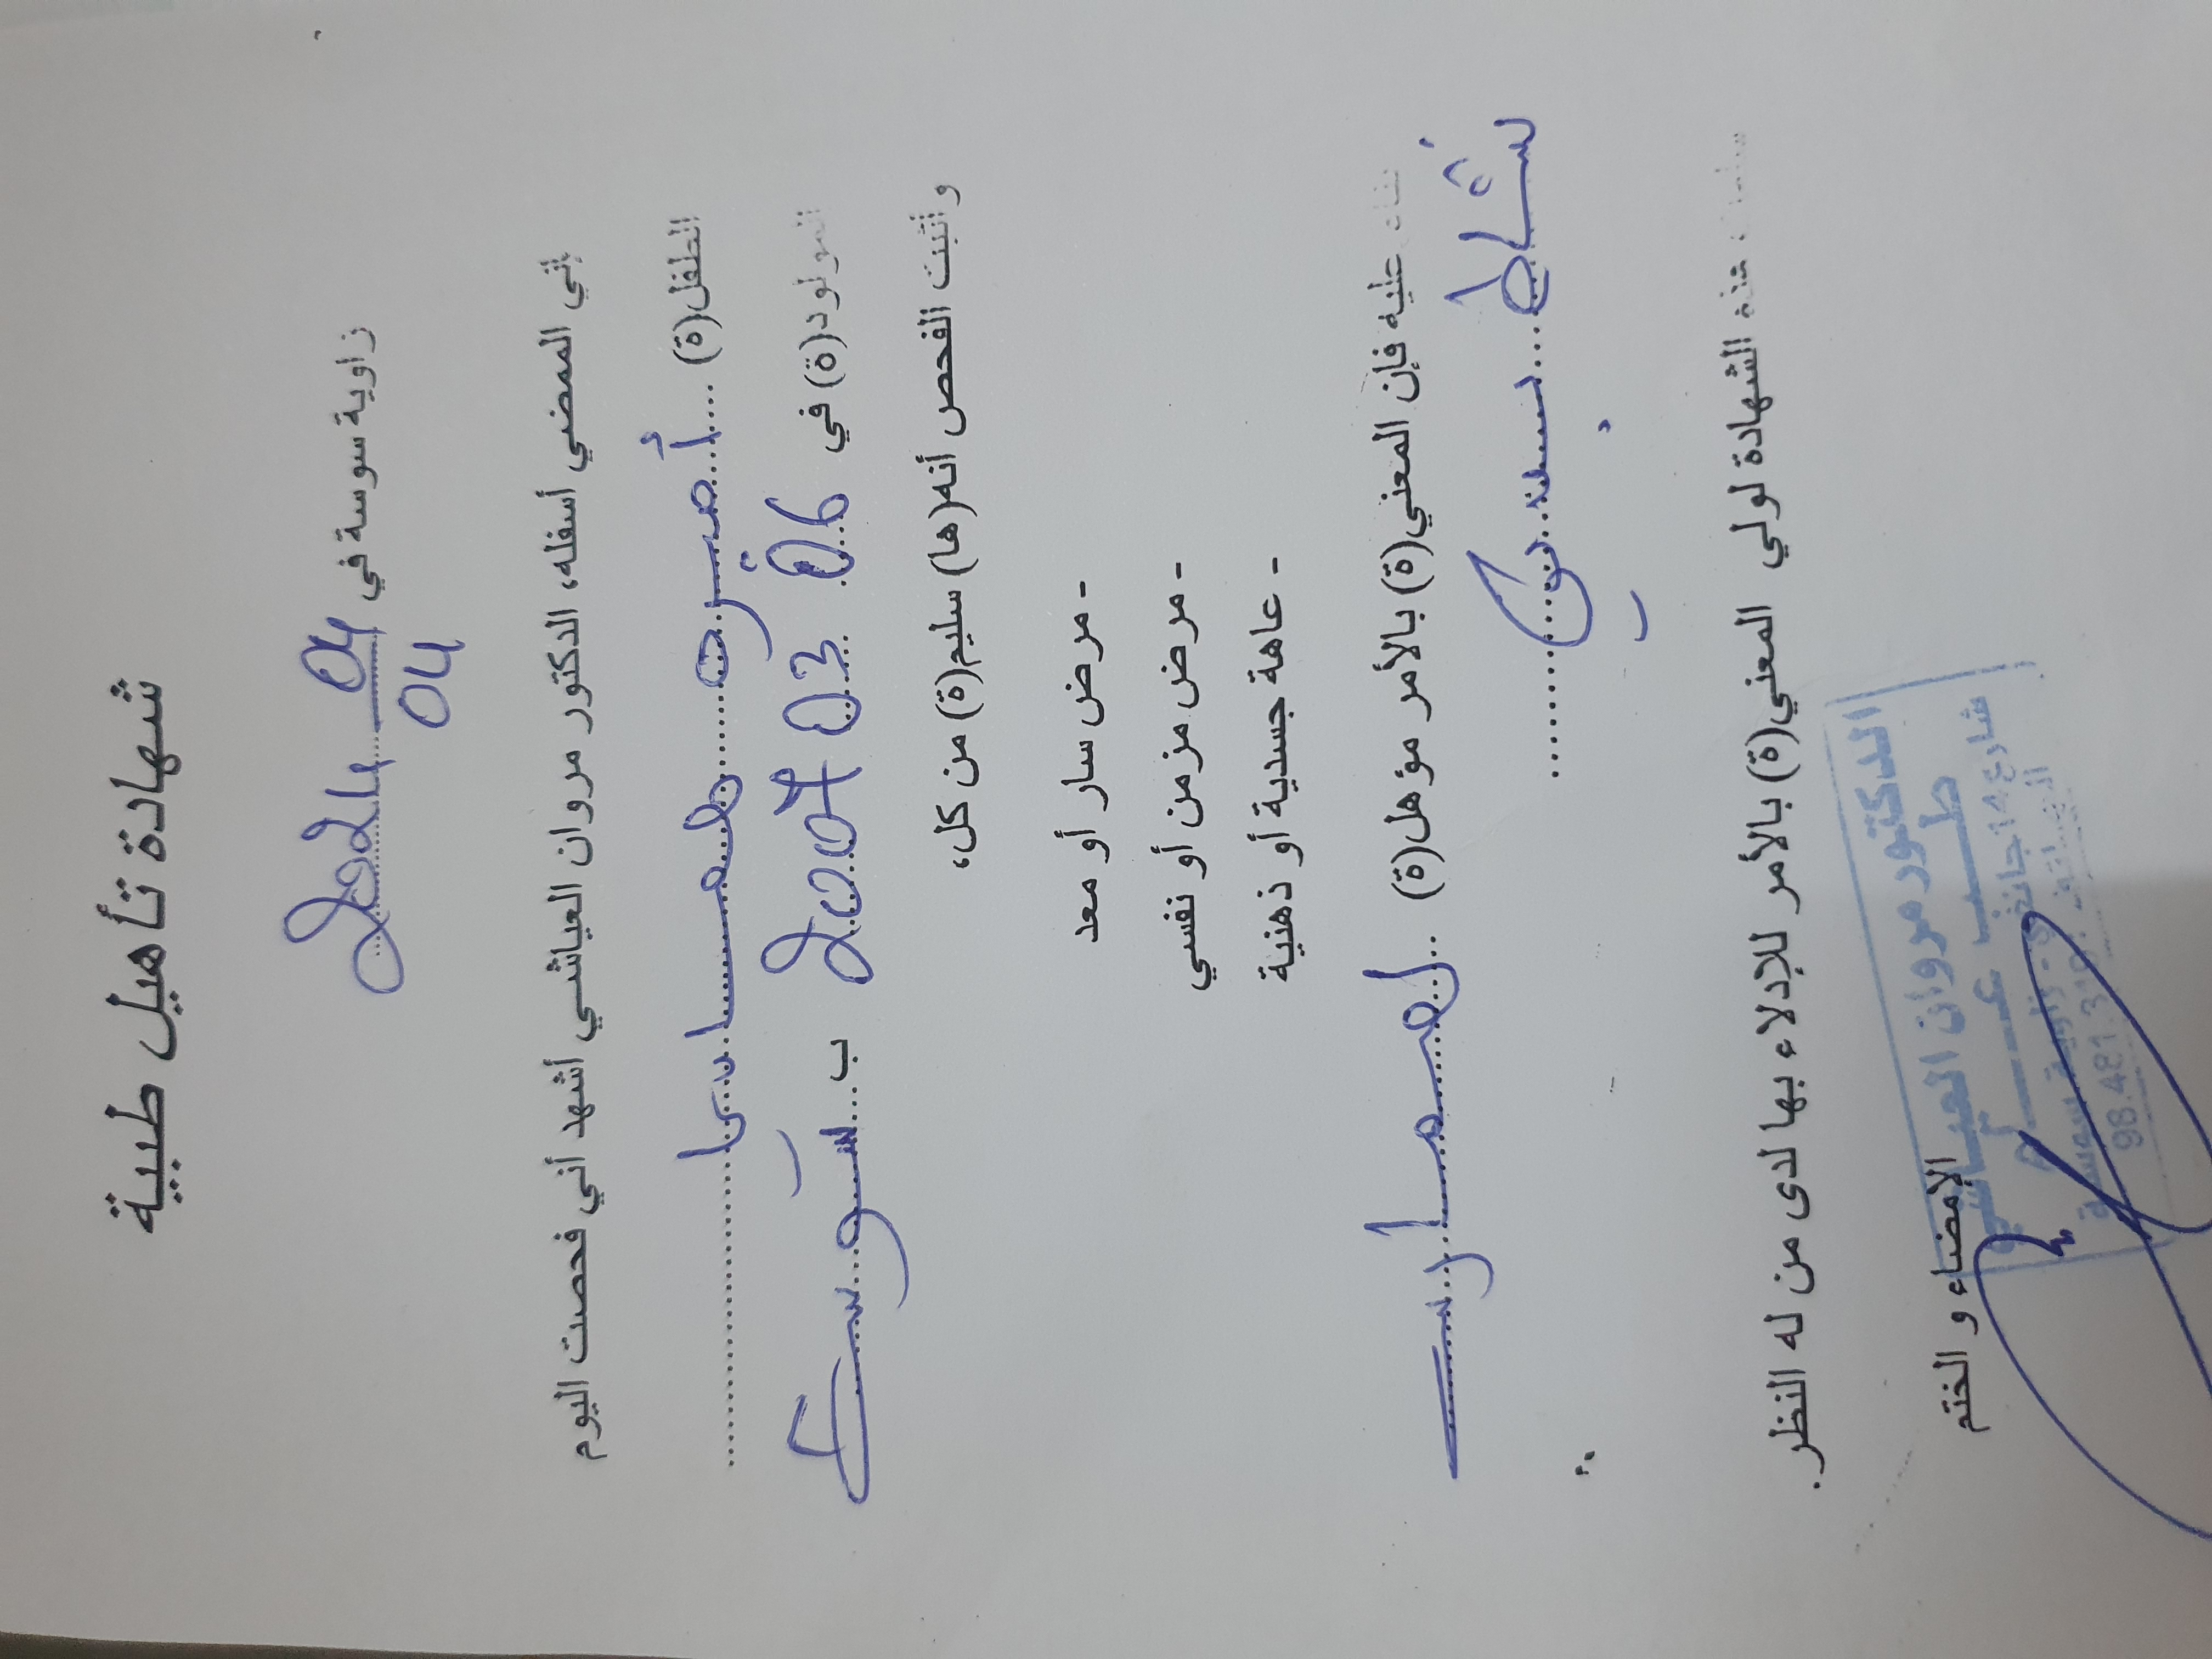 شهادة تأهيل طبية
زاوية سوسة في 04 04 2024
إني الممضي أسفله، الدكتور مروان العياشي أشهد أني فحصت اليوم
الطفل(ة)
المولود(ة) في 06 03 2007 ب سوسة
وأثبت الفحص أنه(ها) سليم(ة) من كل،
- مرض سار أو معد
- مرض مزمن أو نفسي
- عاهة جسدية أو ذهنية
عليه فإن المعني(ة) بالأمر مؤهل(ة) لممارسة
نشاط
هذه الشهادة لولي المعني(ة) بالأمر للإدلاء بها لدى من له النظر.
الإمضاء و الختم
الدكتور مروان العياشي
طبيب عـــام
شارع 14 جانفي - زاوية سوسة
الهاتف: 98.481.318